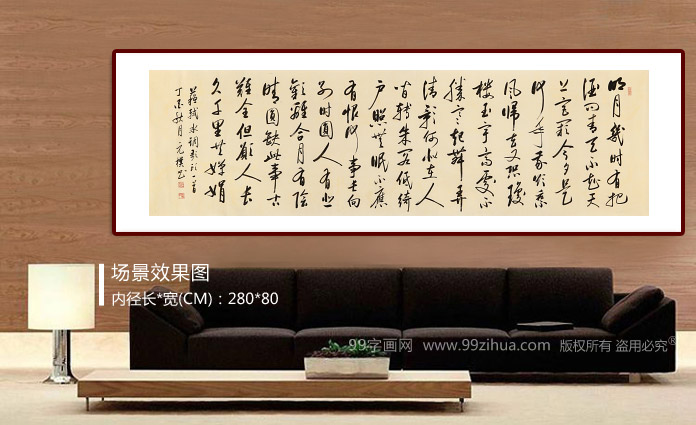 明月幾时有把
酒问青天不知天
上宫阙今夕是
何年我欲乘
风归去又恐瓊
楼玉宇高處不
勝寒起舞弄
清影何似在人
间轉朱阁低绮
户照無眠不應
有恨何事长向
别时圆人有悲
歡離合月有陰
晴圆缺此事古
難全但願人长
久千里共嬋娟
蘇轼水调歌头一首
丁酉秋月元
场景效果图
内径长*宽(CM)：280*80
99字画网 www.99zihua.com 版权所有 盗用必究®